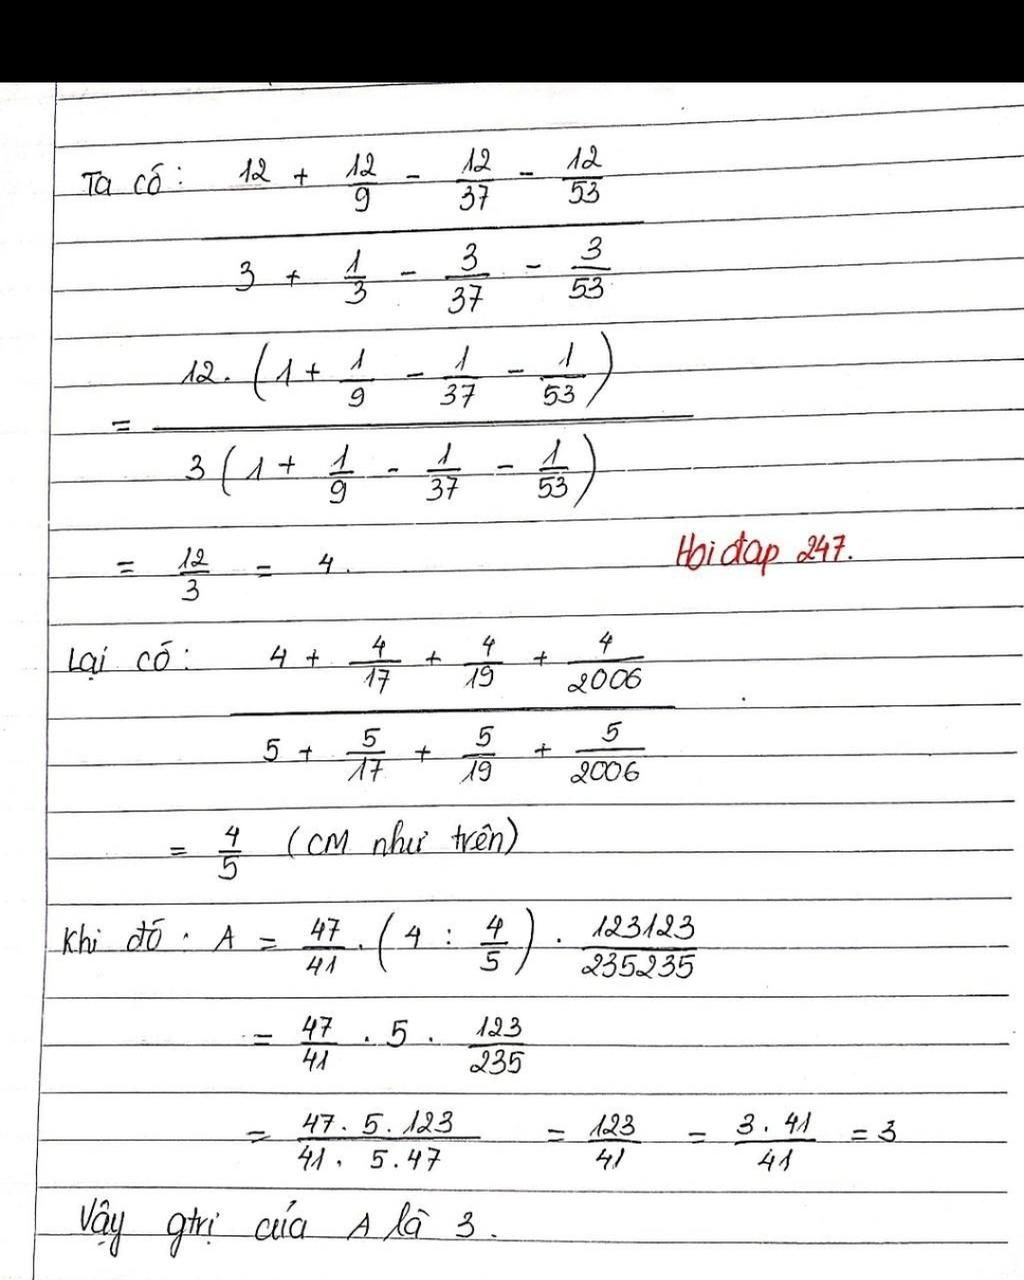 Ta có: 12 + 12/9 - 12/37 - 12/53
3 + 1/3 - 3/37 - 3/53
= 12. (1 + 1/9 - 1/37 - 1/53)
3 (1 + 1/9 - 1/37 - 1/53)
= 12/3 = 4.
Hoidap 247.
Lại có: 4 + 4/17 + 4/19 + 4/2006
5 + 5/17 + 5/19 + 5/2006
= 4/5 (CM như trên)
Khi đó: A = 47/41 . (4 : 4/5) . 123123/235235
= 47/41 . 5 . 123/235
= 47. 5. 123/41. 5. 47 = 123/41 = 3. 41/41 = 3
Vậy gtrị của A là 3.